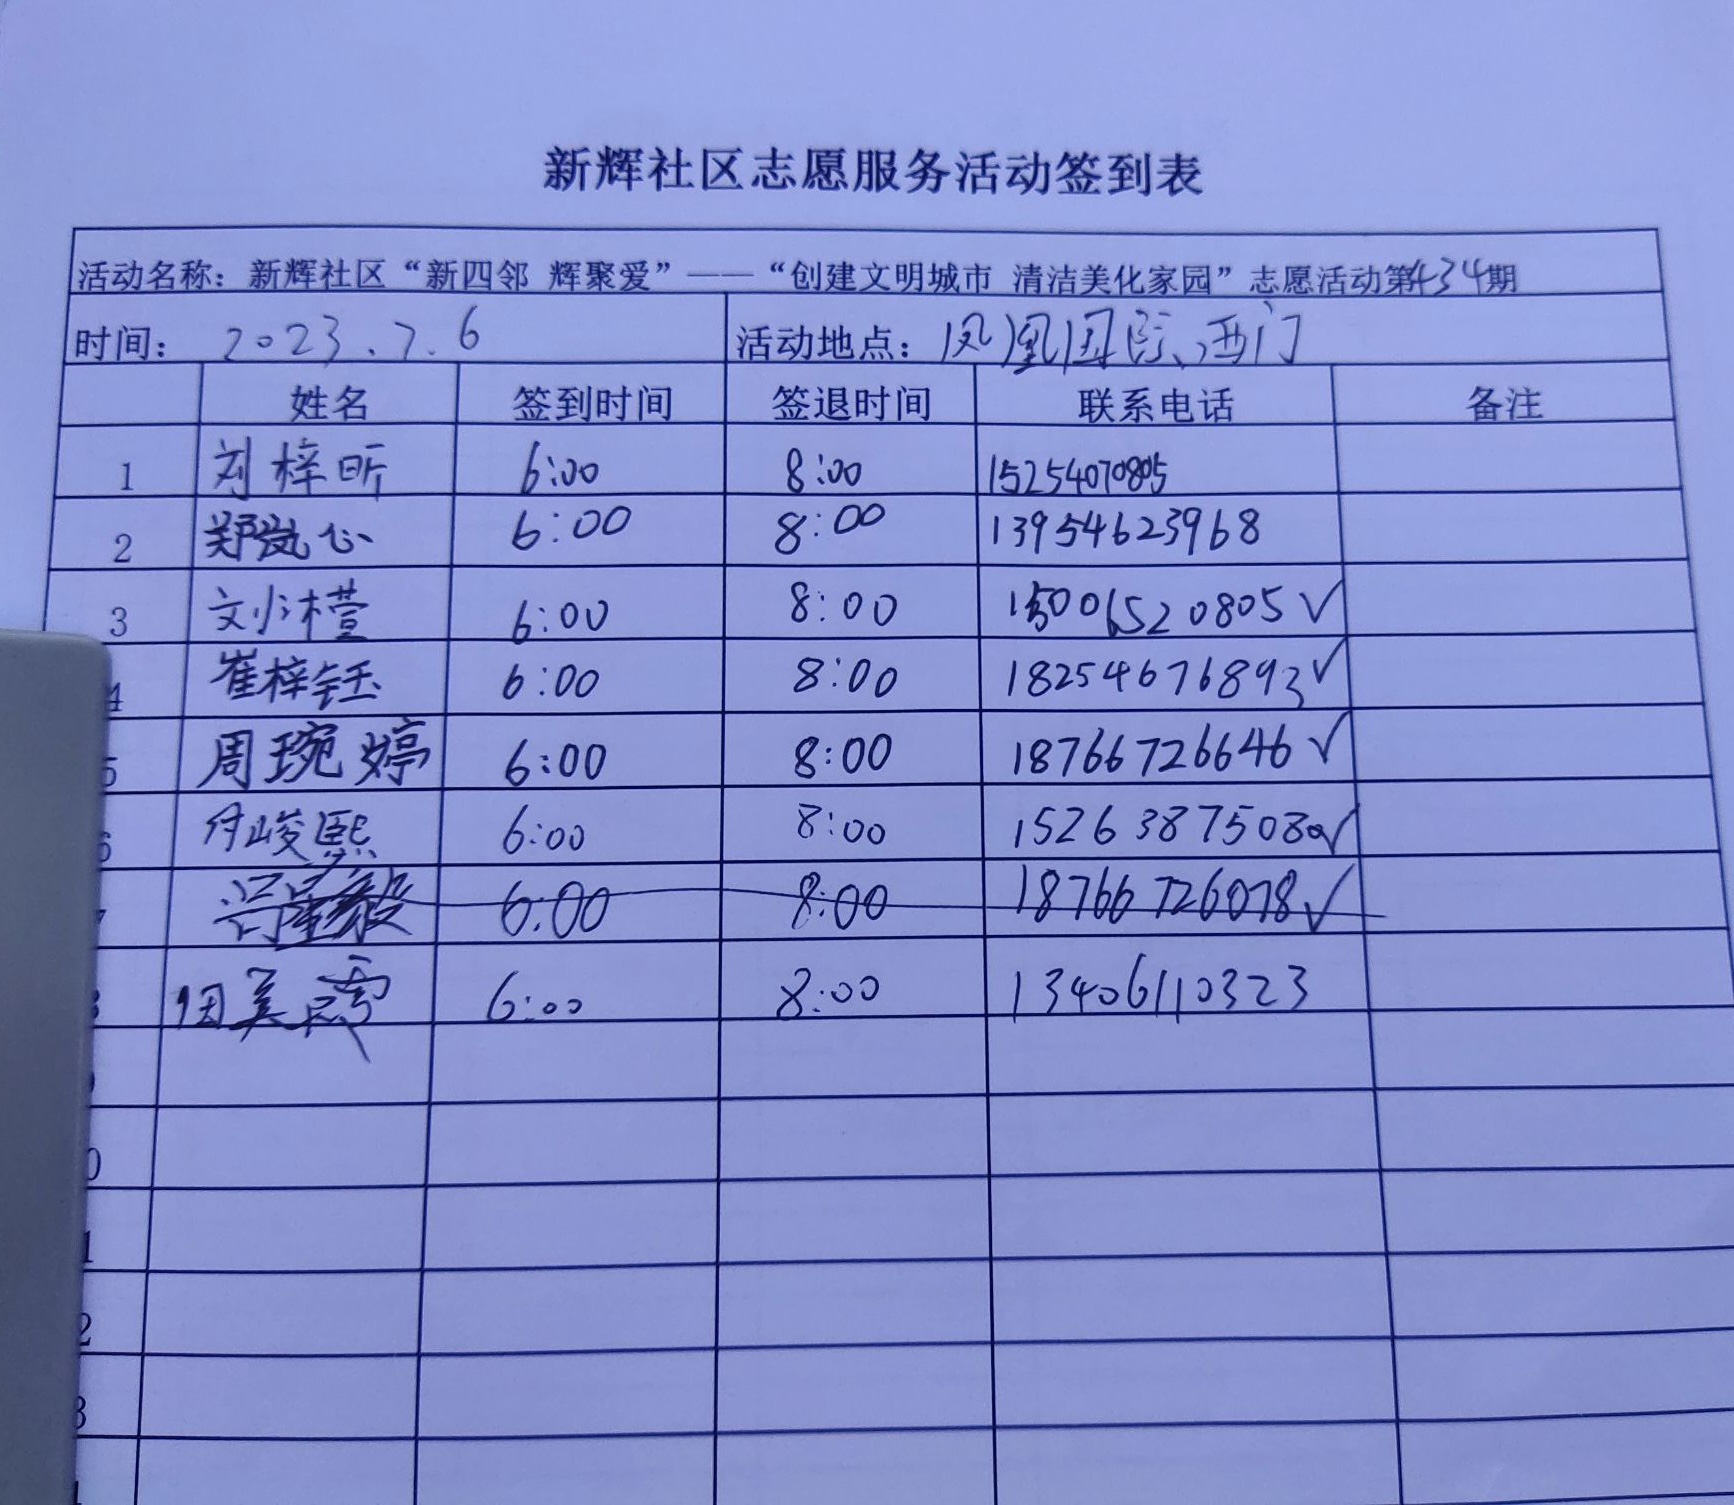 新辉社区志愿服务活动签到表
活动名称：新辉社区“新四邻 辉聚爱”——“创建文明城市 清洁美化家园”志愿活动第434期
时间： 2023.7.6 活动地点：凤凰国际西门
姓名 签到时间 签退时间 联系电话 备注
1 刘梓昕 6:00 8:00 15254070805
2 郑岚心 6:00 8:00 13954623968
3 6:00 8:00 15006520805 ✓
4 崔梓钰 6:00 8:00 18254676893 ✓
5 周琬婷 6:00 8:00 18766726646 ✓
6 付峻熙 6:00 8:00 1526387508 ✓
7 6:00 8:00 18766726078 ✓
6:00 8:00 13406110323
0
1
2
3